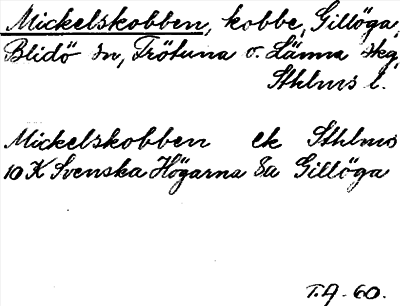 Mickelskobben, kobbe, Gillöga,
Blidö sn, Frötuna o. Länna skg,
Sthlms l.
Mickelskobben ek Sthlms
10 K Svenska Högarna 8a Gillöga
T.A. 60.